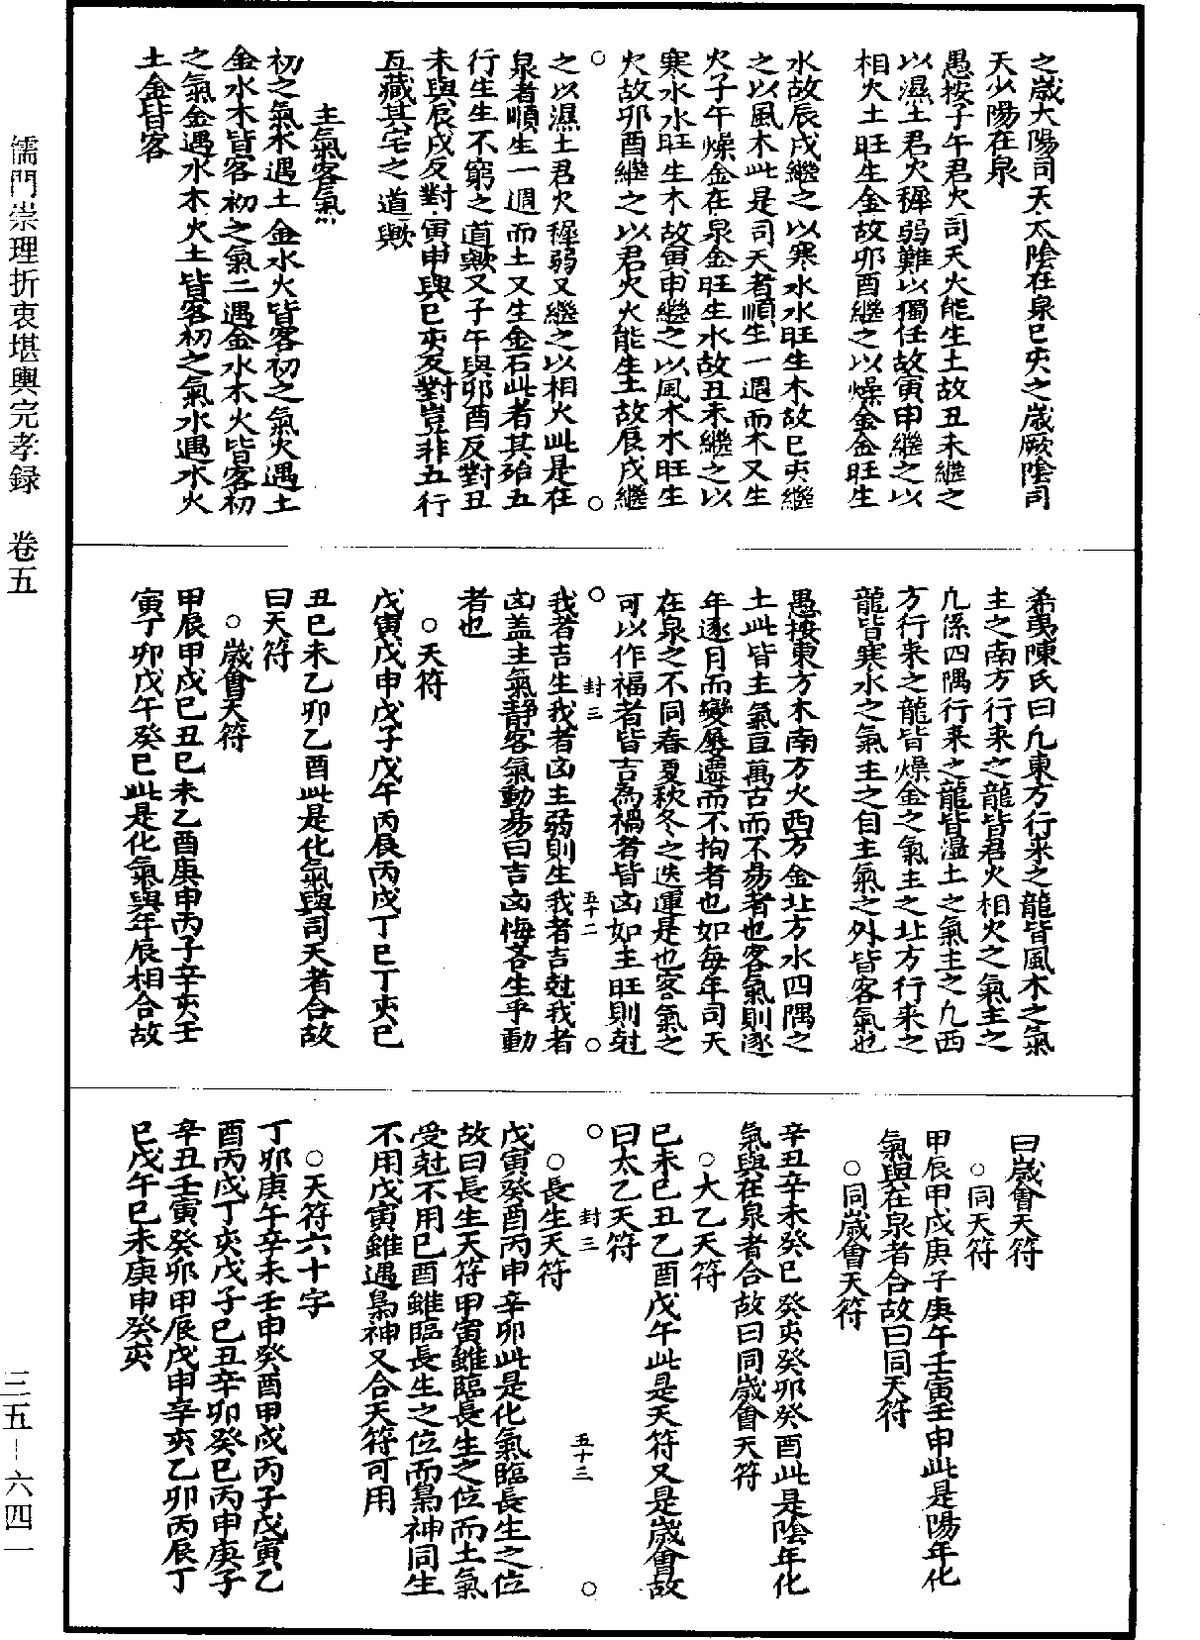 之歲太陽司天太陰在泉巳亥之歲厥陰司
天少陽在泉
愚按子午君火司天火能生土故丑未繼之
以濕土君火穉弱難以獨任故寅申繼之以
相火土旺生金故卯酉繼之以燥金金旺生
水故辰戌繼之以寒水水旺生木故巳亥繼
之以風木此是司天者順生一週而木又生
火子午燥金在泉金旺生水故丑未繼之以
寒水水旺生木故寅申繼之以風木木旺生
火故卯酉繼之以君火火能生土故辰戌繼
○　○
之以濕土君火穉弱又繼之以相火此是在
泉者順生一週而土又生金石此者其殆五
行生生不窮之道歟又子午與卯酉反對丑
未與辰戌反對寅申與巳亥反對豈非五行
互藏其宅之道歟
主氣客氣
初之氣木遇土金水火皆客初之氣火遇土
金水木皆客初之氣二遇金水木火皆客初
之氣金遇水木火土皆客初之氣水遇木火
土金皆客
希夷陳氏曰凢東方行来之龍皆風木之氣
主之南方行来之龍皆君火相火之氣主之
凢係四隅行来之龍皆濕土之氣主之凢西
方行来之龍皆燥金之氣主之北方行来之
龍皆寒水之氣主之自主氣之外皆客氣也
愚按東方木南方火西方金北方水四隅之
土此皆主氣亘萬古而不易者也客氣則逐
年逐月而變屡遷而不拘者也如每年司天
在泉之不同春夏秋冬之迭運是也客氣之
可以作福者皆吉為禍者皆凶如主旺則尅
○　封三　五十二　○
我者吉生我者凶主弱則生我者吉尅我者
凶盖主氣静客氣動易曰吉凶悔吝生乎動
者也
○天符
戊寅戊申戊子戊午丙辰丙戌丁巳丁亥已
丑已未乙卯乙酉此是化氣與司天者合故
曰天符
○歲會天符
甲辰甲戌已丑已未乙酉庚申丙子辛亥壬
寅丁卯戊午癸巳此是化氣與年辰相合故
曰歲會天符
○同天符
甲辰甲戌庚子庚午壬寅壬申此是陽年化
氣與在泉者合故曰同天符
○同歲會天符
辛丑辛未癸巳癸亥癸卯癸酉此是陰年化
氣與在泉者合故曰同歲會天符
○大乙天符
已未已丑乙酉戊午此是天符又是歲會故
曰太乙天符
○　封三　五十三　○
○長生天符
戊寅癸酉丙申辛卯此是化氣臨長生之位
故曰長生天符甲寅雖臨長生之位而土氣
受尅不用已酉雖臨長生之位而梟神同生
不用戊寅雖遇梟神又合天符可用
○天符六十字
丁卯庚午辛未壬申癸酉甲戌丙子戊寅乙
酉丙戌丁亥戊子已丑辛卯癸巳丙申庚子
辛丑壬寅癸卯甲辰戊申辛亥乙卯丙辰丁
巳戊午已未庚申癸亥
儒門崇理折衷堪輿完孝録　卷五
三五-六四一